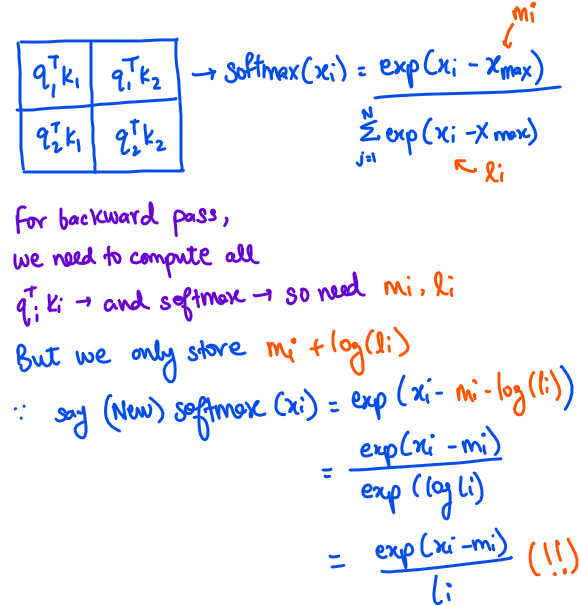 mi
q₁ᵀk₁ q₁ᵀk₂ → softmax(xi) = exp(xi - xmax)
q₂ᵀk₁ q₂ᵀk₂ N Σ j=1 exp(xi - xmax)
li
For backward pass,
we need to compute all
qᵢᵀ ki → and softmax → so need mi, li
But we only store mi + log(li)
∵ say (New) softmax (xi) = exp (xi - mi - log(li))
= exp(xi - mi)
exp (log li)
= exp(xi - mi) (!!)
li